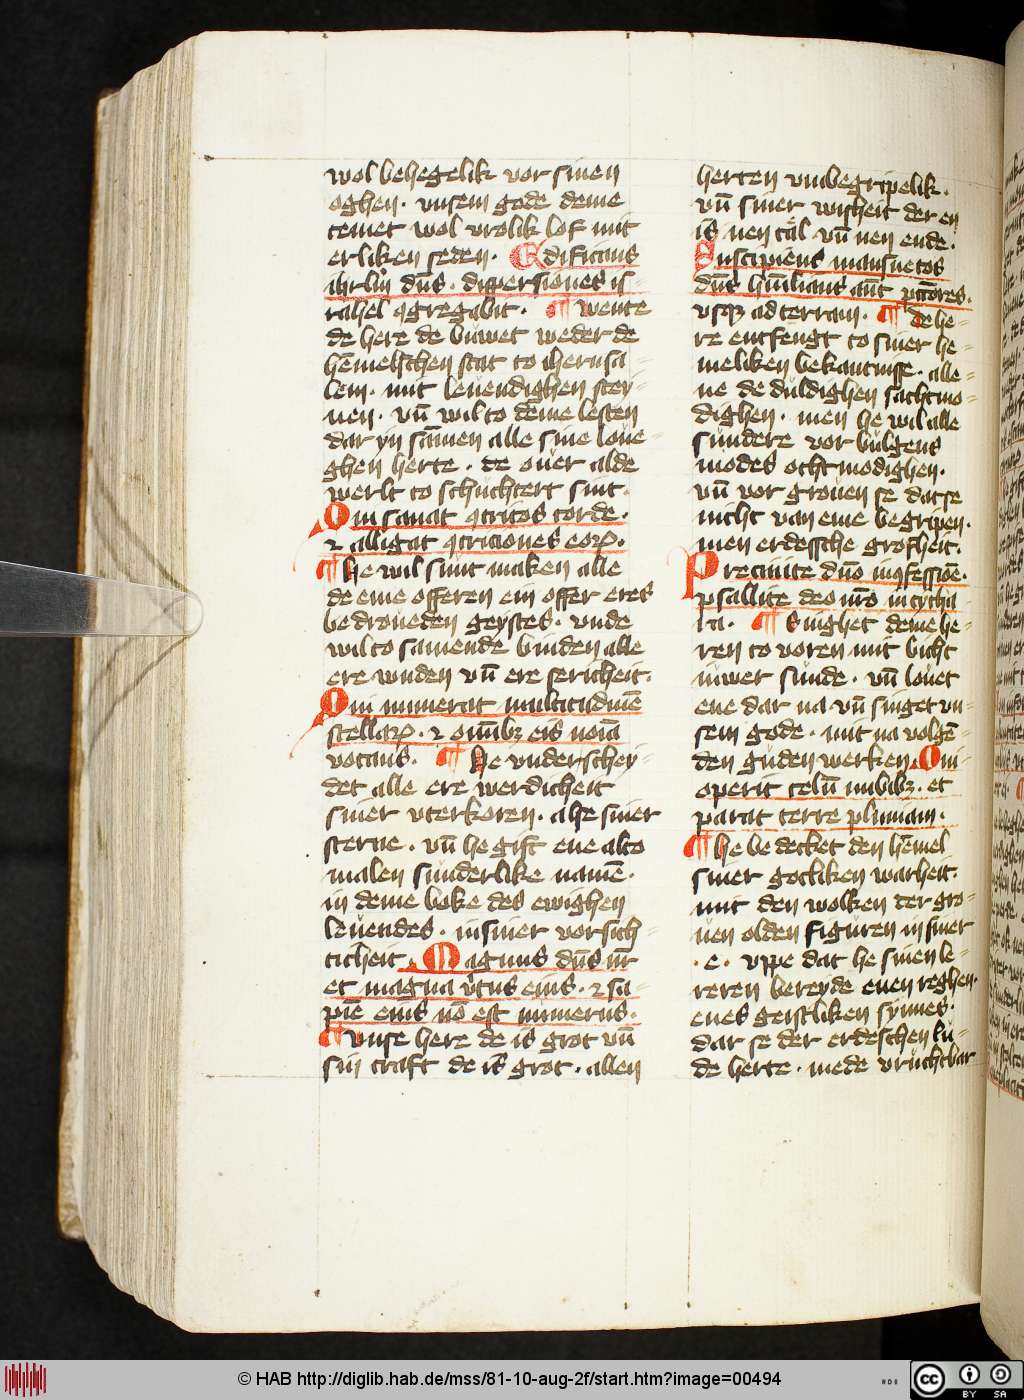 wol behegelik vor sinen
oghen · vnsem gode deme
temet wol vrolik lof mit
erliken seden · Edificans
ihrlm̄ dn̄s · dispersiones is
rahel ꝯgregabit · ¶ wente
de here de buwet weder de
hēmelschen stat to iherusa
lem · mit leuendighen stey
nen · vn̄ wil to deme lesten
dar yn sāmen alle sine loue
ghen herte · de ouer alde
werlt to schuchtert sint ·
Qui sanat ꝯtritos corde ·
⁊ alligat ꝯtritiones eoꝝ ·
¶ he wil sunt maken alle
de eme offeren ein offer eres
bedroueden geystes · vnde
wil to samende binden alle
ere wuden vn̄ ere sericheit ·
Qui numerat multitudinē
stellaꝝ · ⁊ omībꝫ eis noīa
vocans · ¶ he vnderschey
det alle ere werdicheit
siner vterkoren · alse siner
sterne · vn̄ he gift ene alto
malen sunderlike namē ·
in deme boke des ewighen
leuendes · in siner vorsich
ticheit · Magnus dn̄s nr̄
et magna v̄tus eius · ⁊ sa
piē eius nō est numerus ·
¶ vnse here de is grot vn̄
sin craft de is grot · allen
herten vmbegripelik ·
vn̄ siner wisheit der en
is nen tal vn̄ nen ende ·
Suscipiens mansuetos
dn̄s hūilians aūt pc̄c̄ores ·
vsqꝫ ad terram · ¶ de he
re entfengt to siner he
meliken bekantnisse · alle
ne de duldighen sachtmo
dighen · men he wil alle
sundere vor bulgens
modes othtmodighen ·
vn̄ vor grouen se dat se
nicht van eme begripen ·
men erdessche grofheit ·
Precinite dn̄o in ꝯfessiōe ·
psallite deo nr̄o in cytha
ra · ¶ Singhet deme he
ren to voren mit bicht
iuwer sunde · vn̄ louet
ene dar na vn̄ singet vn
sem gode · mit na volgē
den guden werken · Qui
operit celū nubibꝫ · et
parat terre pluuiam ·
¶ he be decket den hēmel
siner gotliken warheit ·
mit den wolken der gro
uen olden figuren in siner
· e · vppe dat he sinen le
reren bereyde enen reghen ·
enes geistliken synnes ·
dar se der erdeschen lu
de herte · mede vruchtbar
© HAB http://diglib.hab.de/mss/81-10-aug-2f/start.htm?image=00494
cc BY SA